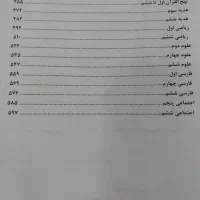 نهج القرآن اول تا ششم ۲۵۵
هدیه سوم ۴۷۲
هدیه ششم ۴۸۲
ریاضی اول ۴۹۲
ریاضی ششم ۵۱۰
علوم دوم ۵۲۶
علوم چهارم ۵۳۵
علوم ششم ۵۴۷
فارسی اول ۵۵۹
فارسی چهارم ۵۶۹
فارسی ششم ۵۷۶
اجتماعی پنجم ۵۸۵
اجتماعی ششم ۵۹۷